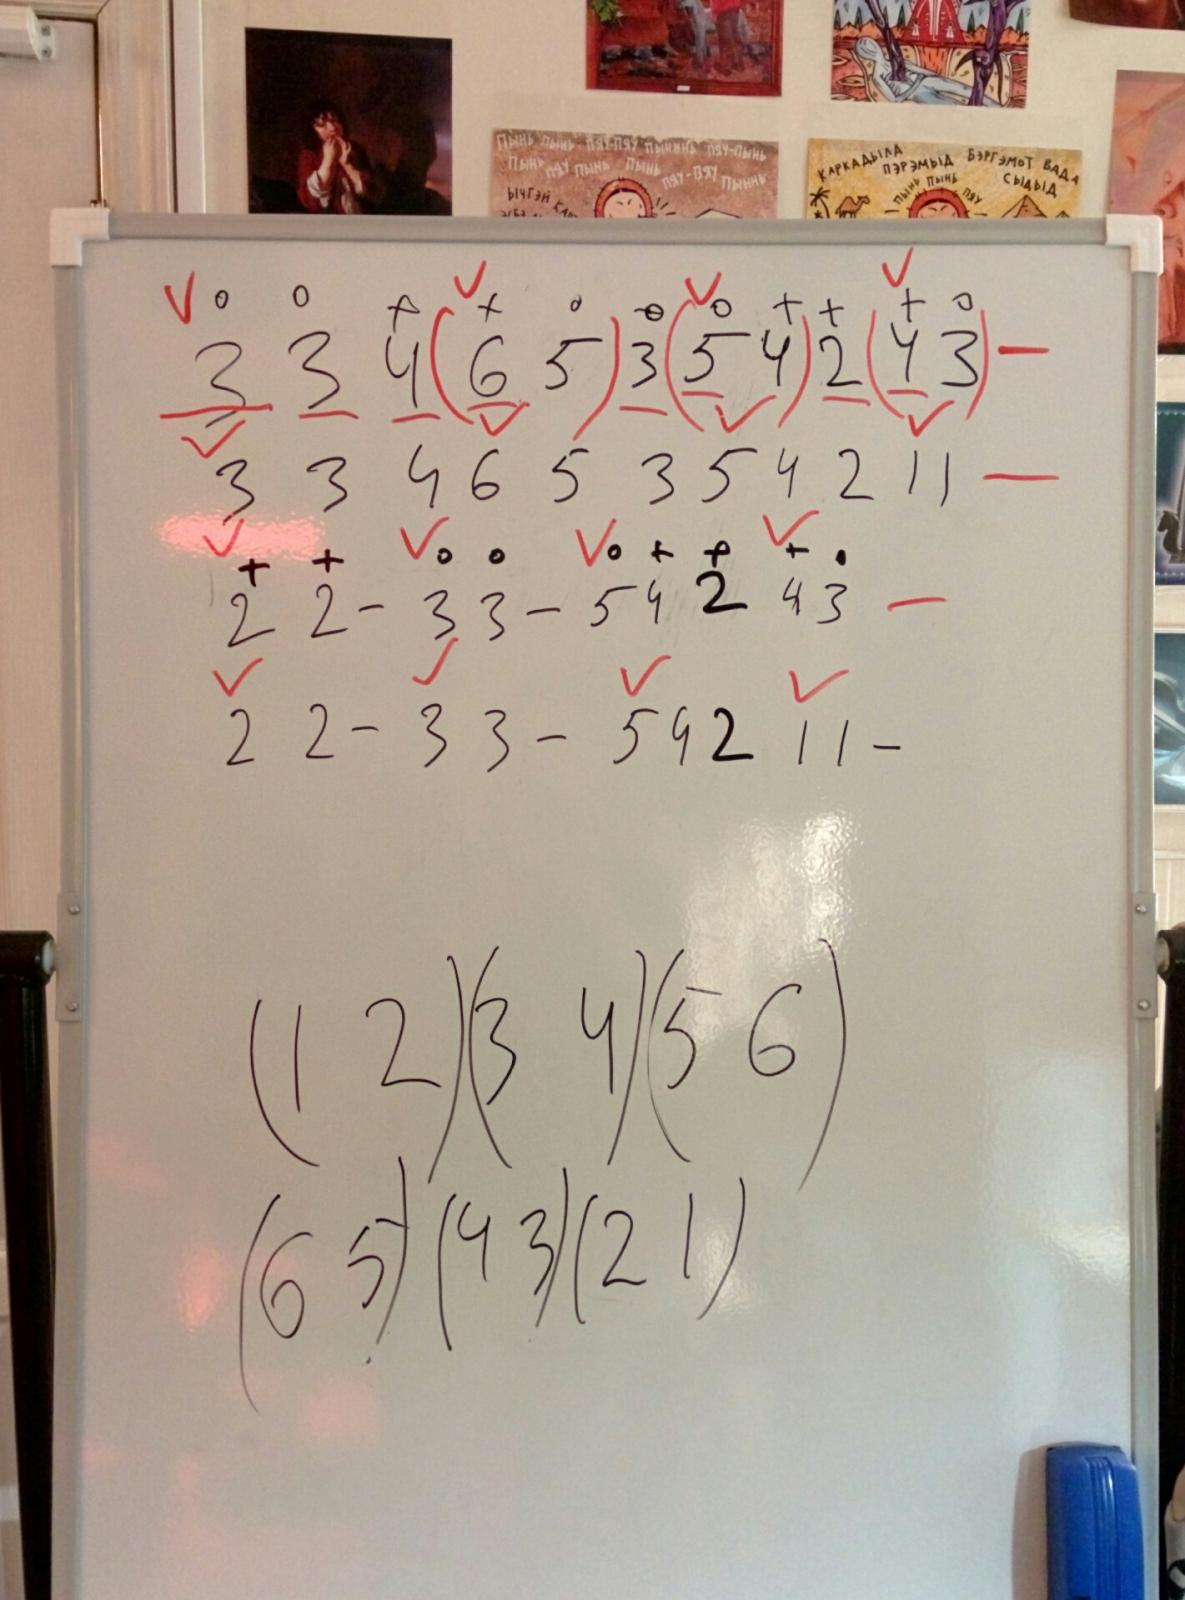 ПЫНЬ ПЫНЬ ПЯУ-ПЯУ ПЫНЬНЬ ПЯУ-ПЫНЬ
ПЫНЬ ПЯУ ПЫНЬ ПЫНЬ ПЯУ-ПЯУ ПЫННЬ
ЫЧГЭЙ
КАРКАДЫЛД ПЭРЭМЫД БЭРГЭМОТ ВАДА
ПЫНЬ ПЫНЬ ПЯУ СЫДЫД
√ o o + + √ o o o √ + + + √ o
3 3 4 (6 5) 3 (5 4) 2 (4 3) –
3 3 4 6 5 3 5 4 2 1 1 –
√ + + √ o o √ o + + √ + •
2 2 – 3 3 – 5 4 2 4 3 –
√ √ √ √
2 2 – 3 3 – 5 4 2 1 1 –
(1 2)(3 4)(5 6)
(6 5)(4 3)(2 1)